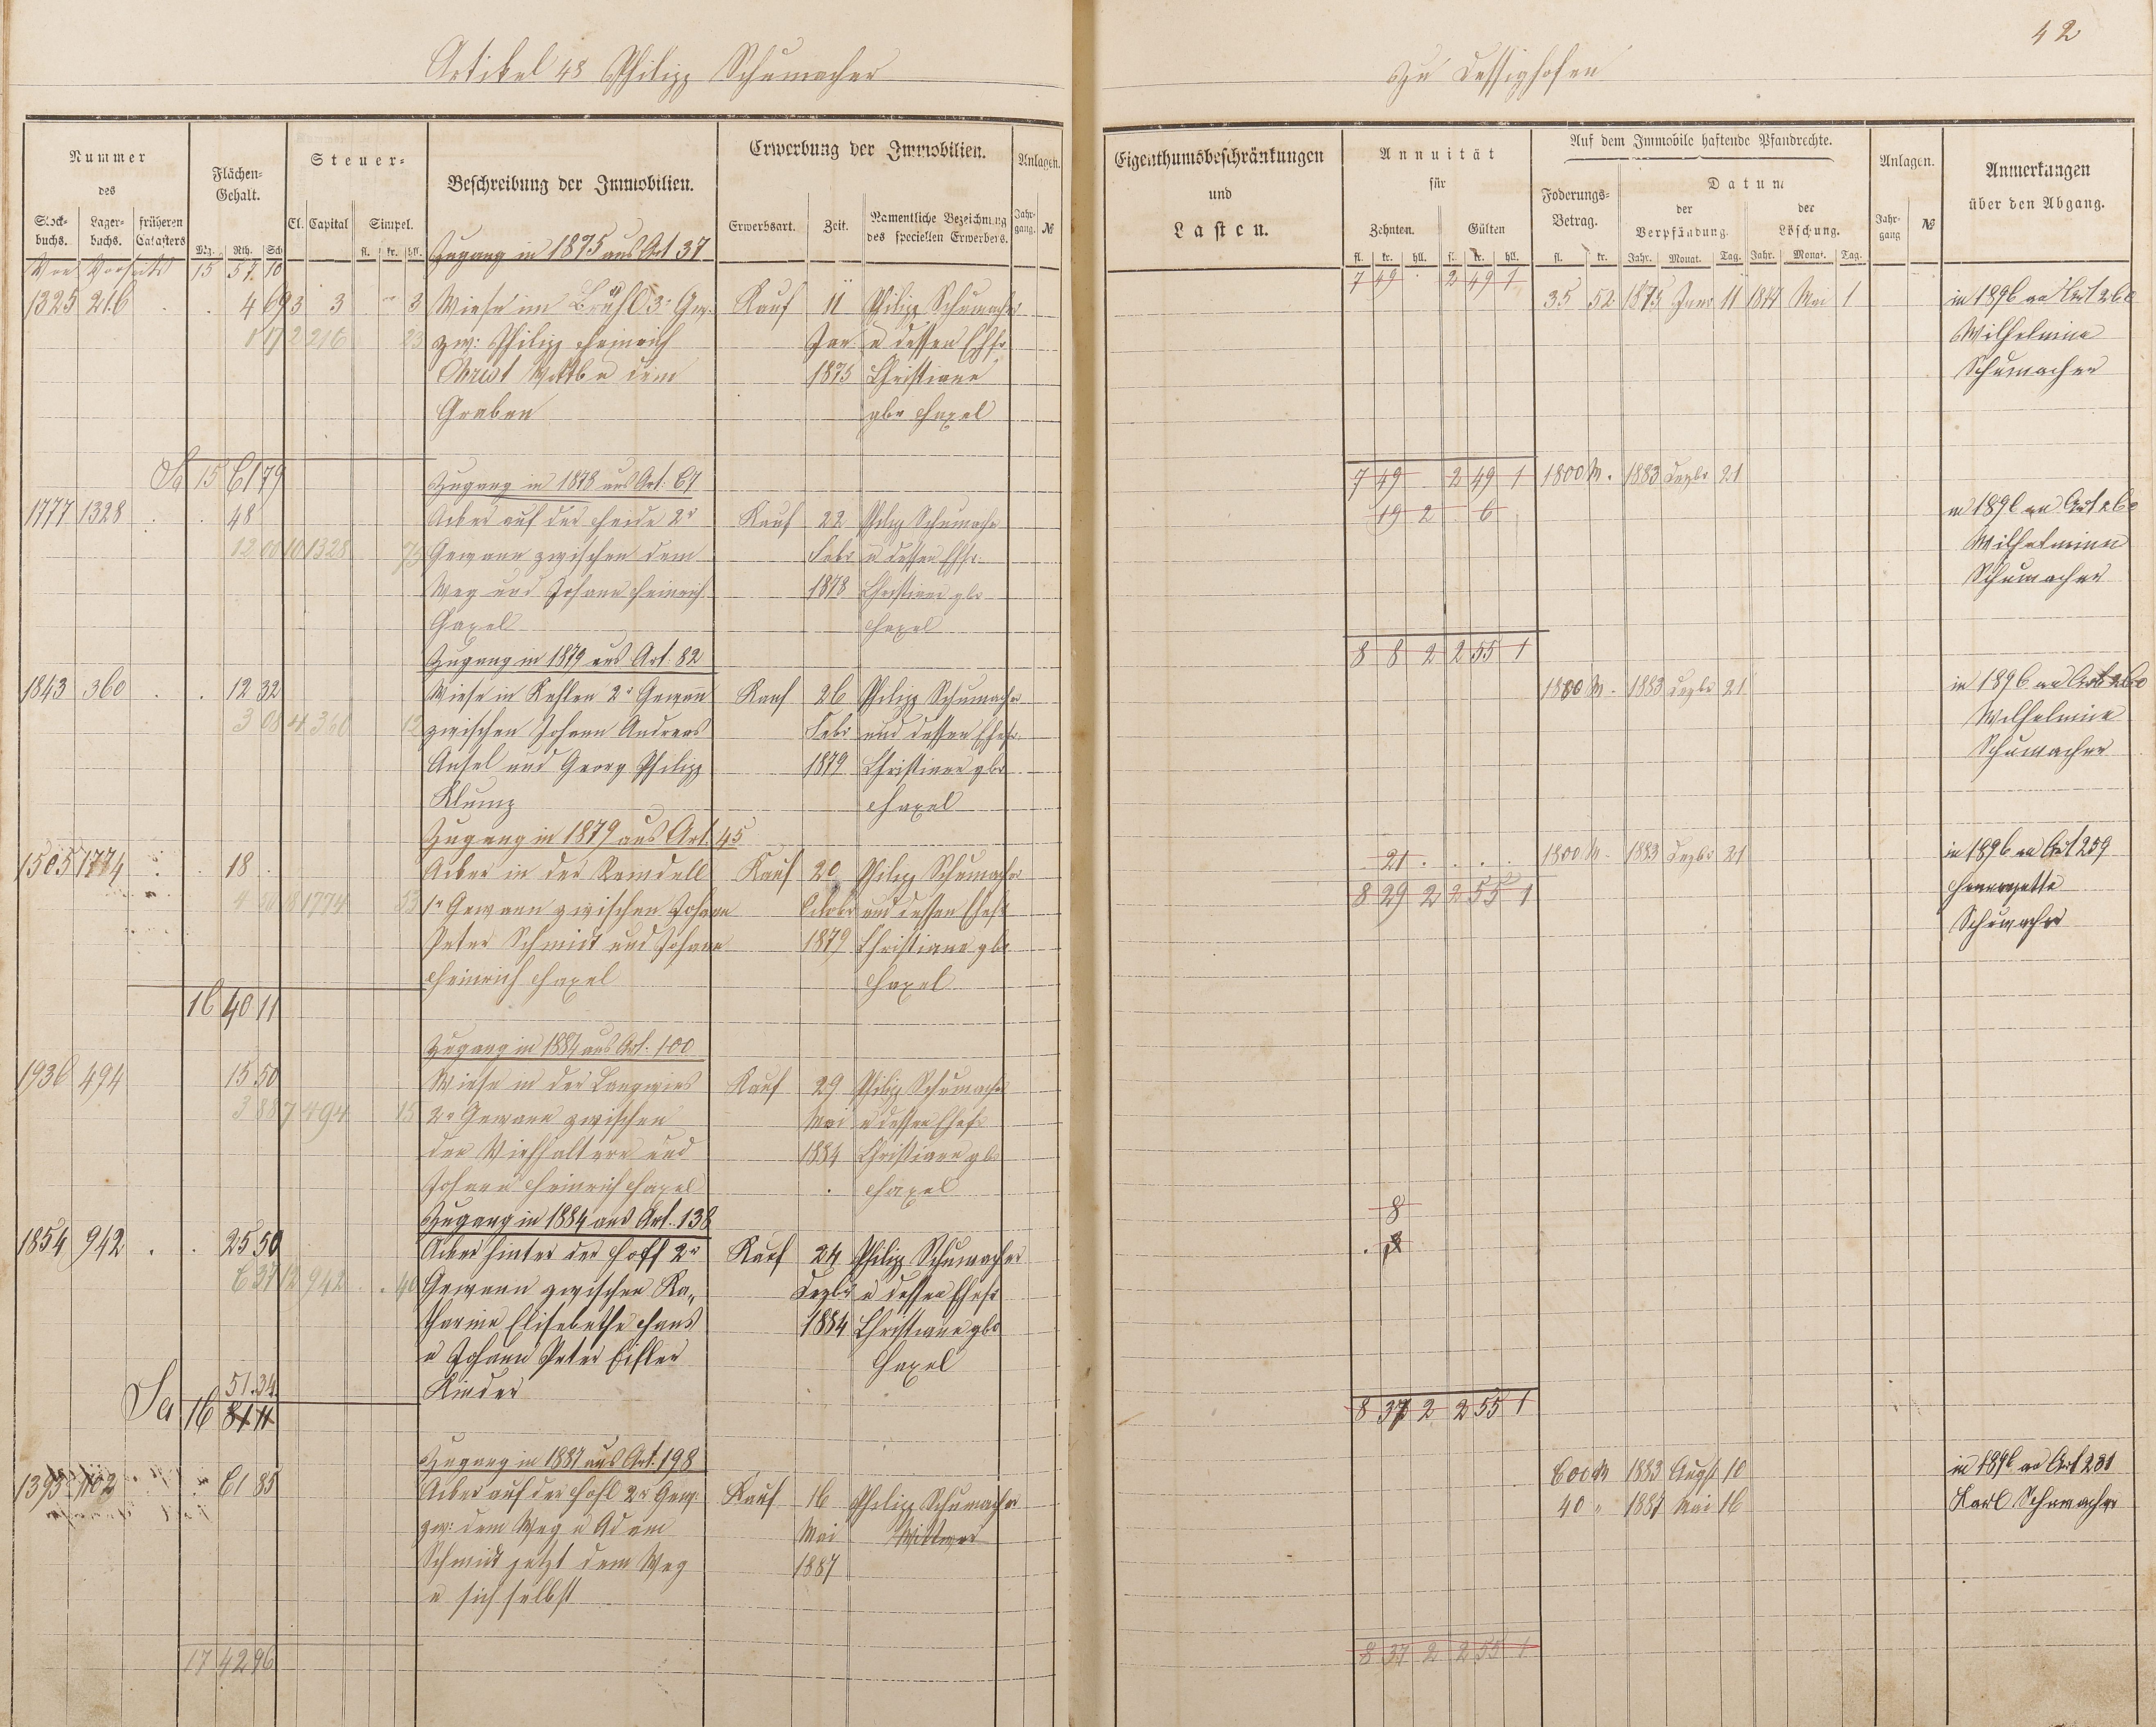 42
Artikel 48 Philipp Schumacher
zu Dessighofen
Nummer des
Stock-buchs. Lager-buchs. früheren Catasters
Flächen-Gehalt.
Mg. Rth. Sch
Steuer-
Cl. Capital Simpel.
fl. kr. hll.
Beschreibung der Immobilien.
Erwerbung der Immobilien.
Erwerbsart. Zeit. Namentliche Bezeichnung des speciellen Erwerbers.
Anlagen.
Jahr-gang. №
Eigenthumsbeschränkungen
und
Lasten.
Annuität
für
Zehnten. Gülten
fl. kr. hll. fl. kr. hll.
Auf dem Immobile haftende Pfandrechte.
Foderungs-Betrag.
fl. kr.
Datum
der Verpfändung. der Löschung.
Jahr. Monat. Tag. Jahr. Monat. Tag.
Anlagen.
Jahr-gang №
Anmerkungen
über den Abgang.
Zugang in 1875 aus Art 37
Von Vorseite 15 57 10 7 49 . 2 49 1
1325 216 . . 4 69 3 3 3 Wiese im Brühl 3r Gew. Kauf 11 Philipp Schumacher 35 52 1875 Janr 11 1877 Mai 1 in 1896 an Art 260
2 216 23 zw: Philipp Heinrich Jan u dessen Ehfr Wilhelmine
Christ Wittb u dem 1875 Christiane Schumacher
Graben gbr Haxel
Sa 15 61 79 7 49 2 49 1 1800 M. 1883 Dezbr 21
Zugang in 1878 aus Art. 67
1777 1328 . . 48 Acker auf der Heide 2r Kauf 22 Philipp Schumacher 19 2 6 in 1896 an Art 260
12 00 10 1328 73 Gewann zwischen dem Febr u dessen Ehfr. Wilhelmine
Weg und Johann Heinrich 1878 Christiane gbr Schumacher
Haxel Haxel
Zugang in 1879 aus Art. 82 8 8 2 2 55 1
1843 360 . . 12 32 Wiese in Kehlen 2r Gewann Kauf 26 Philipp Schumacher 1800 M. 1883 Dezbr 21 in 1896 an Art 260
3 08 4 360 12 zwischen Johann Andreas Febr und dessen Ehefr. Wilhelmine
Ansel und Georg Philipp 1879 Christiane gbr Schumacher
Klump Haxel
Zugang in 1879 aus Art. 45
1505 1774 . . 18 . Acker in der Ramdell Kauf 20 Philipp Schumacher 21 . . . . 1800 M. 1883 Dezbr 21 in 1896 an Art 259
4 50 8 1774 53 1r Gewann zwischen Johann Octobr und dessen Ehefr 8 29 2 2 55 1 Henriette
Peter Schmidt und Johann 1879 Christiane gbr Schumacher
Heinrich Haxel Haxel
16 40 11
Zugang in 1884 aus Art. 100
1936 494 15 50 Wiese in der Langwies Kauf 29 Philipp Schumacher
3 88 7 494 15 2r Gewann zwischen Mai u dessen Ehefr
den Viehhaltern und 1884 Christiane gbr
Johann Heinrich Haxel . Haxel
Zugang in 1884 aus Art. 138 8
1854 942 . . 25 50 Acker hinter der Hoff 2r Kauf 24 Philipp Schumacher
6 37 12 942 . . 40 Gewann zwischen Ka- Dezbr u dessen Ehefr
tharine Elisabethe Haus 1884 Christiane gbr
u Johann Peter Eisler Haxel
Kinder
51.34
Sa 16 81 11 8 37 2 2 55 1
Zugang in 1887 aus Art. 198
1393 1102 . 61 85 Acker auf der Hohl 2r Gew. Kauf 16 Philipp Schumacher 600 M 1883 Augst 10 in 1896 an Art 231
zw: dem Weg u Adam Mai Wittwer 40 " 1887 Mai 16 Karl Schumacher
Schmidt jetzt dem Weg 1887
u sich selbst
17 42 96 8 37 2 2 55 1